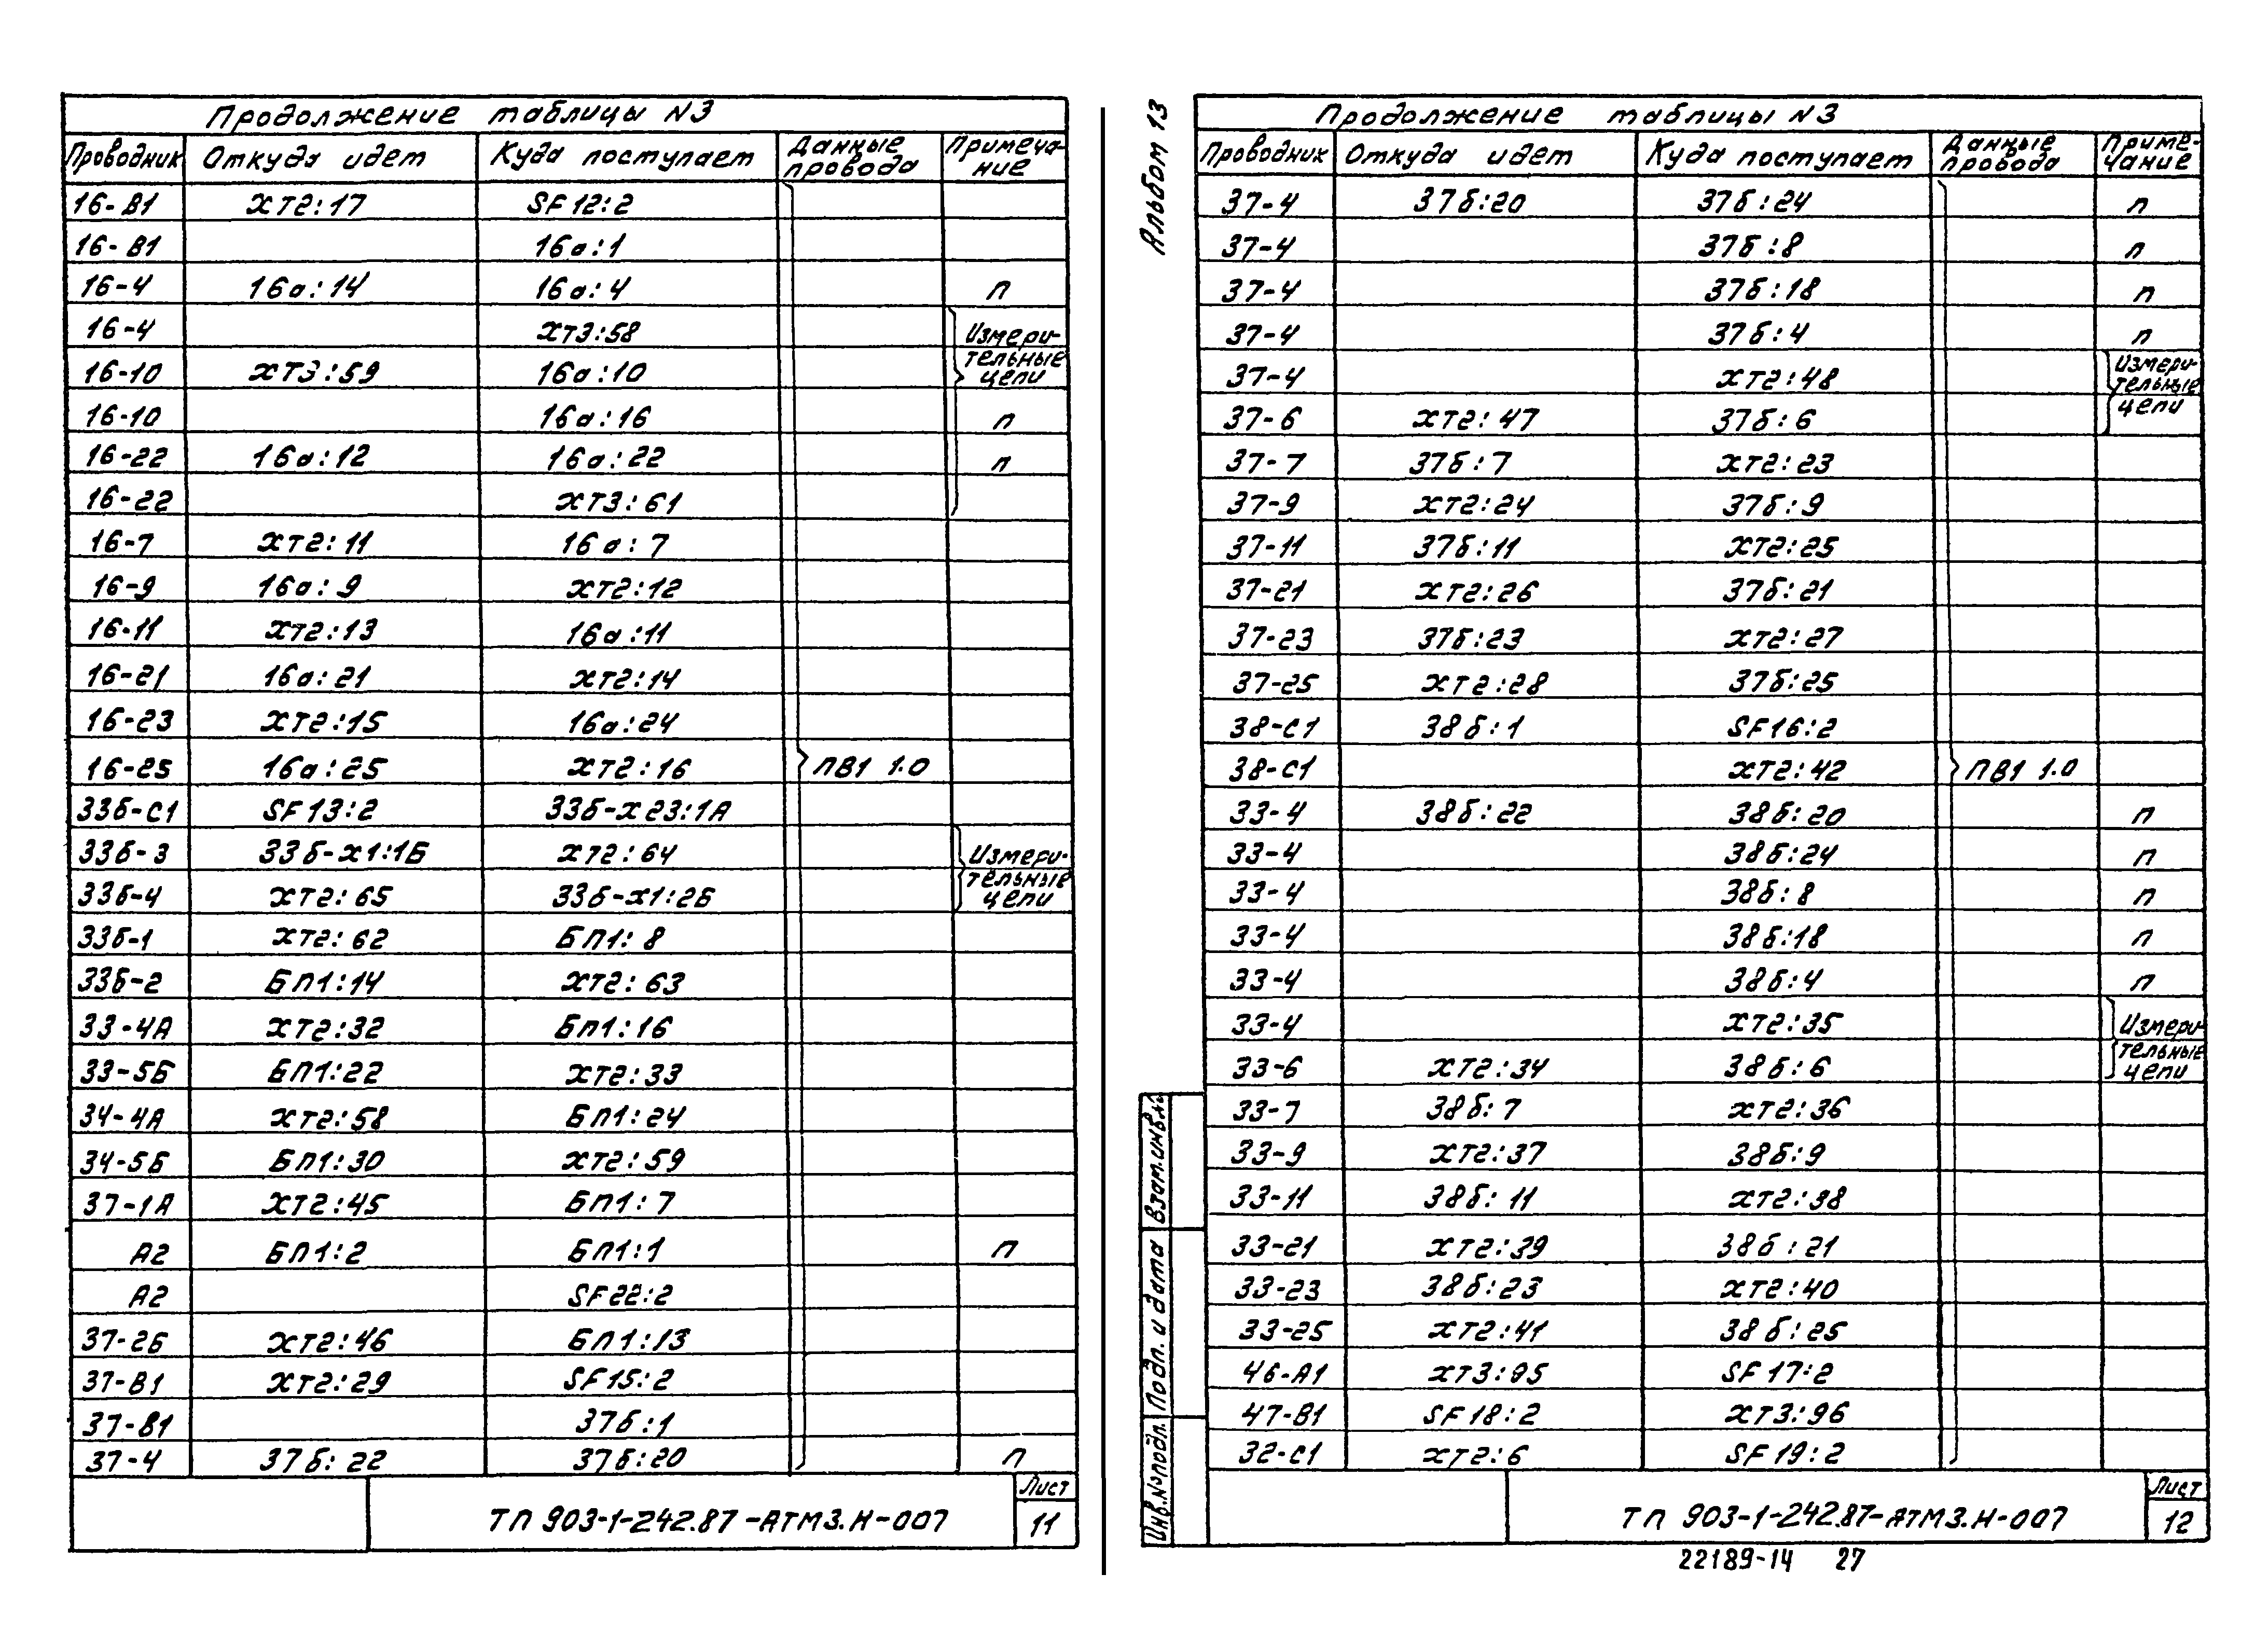 Продолжение таблицы N3
Проводник Откуда идет Куда поступает Данные провода Примечание
16-В1 ХТ2:17 SF12:2
16-В1 16а:1
16-4 16а:14 16а:4 п
16-4 ХТ3:58 Измери-
16-10 ХТ3:59 16а:10 тельные цепи
16-10 16а:16 п
16-22 16а:12 16а:22 п
16-22 ХТ3:61
16-7 ХТ2:11 16а:7
16-9 16а:9 ХТ2:12
16-11 ХТ2:13 16а:11
16-21 16а:21 ХТ2:14
16-23 ХТ2:15 16а:24
16-25 16а:25 ХТ2:16 ПВ1 1.0
33б-С1 SF13:2 33б-Х23:1А
33б-3 33б-Х1:1Б ХТ2:64 Измери-
33б-4 ХТ2:65 33б-Х1:2Б тельные цепи
33б-1 ХТ2:62 БП1:8
33б-2 БП1:14 ХТ2:63
33-4А ХТ2:32 БП1:16
33-5Б БП1:22 ХТ2:33
34-4А ХТ2:58 БП1:24
34-5Б БП1:30 ХТ2:59
37-1А ХТ2:45 БП1:7
А2 БП1:2 БП1:1 п
А2 SF22:2
37-2Б ХТ2:46 БП1:13
37-В1 ХТ2:29 SF15:2
37-В1 37б:1
37-4 37б:22 37б:20 п
ТП 903-1-242.87-АТМ3.Н-007
Лист
11
Альбом 13
Продолжение таблицы N3
Проводник Откуда идет Куда поступает Данные провода Примечание
37-4 37б:20 37б:24 п
37-4 37б:8 п
37-4 37б:18 п
37-4 37б:4 п
37-4 ХТ2:48 Измери-тельные
37-6 ХТ2:47 37б:6 цепи
37-7 37б:7 ХТ2:23
37-9 ХТ2:24 37б:9
37-11 37б:11 ХТ2:25
37-21 ХТ2:26 37б:21
37-23 37б:23 ХТ2:27
37-25 ХТ2:28 37б:25
38-С1 38б:1 SF16:2
38-С1 ХТ2:42 ПВ1 1.0
33-4 38б:22 38б:20 п
33-4 38б:24 п
33-4 38б:8 п
33-4 38б:18 п
33-4 38б:4 п
33-4 ХТ2:35 Измери-
33-6 ХТ2:34 38б:6 тельные цепи
33-7 38б:7 ХТ2:36
33-9 ХТ2:37 38б:9
33-11 38б:11 ХТ2:38
33-21 ХТ2:39 38б:21
33-23 38б:23 ХТ2:40
33-25 ХТ2:41 38б:25
46-А1 ХТ3:95 SF17:2
47-В1 SF18:2 ХТ3:96
32-С1 ХТ2:6 SF19:2
Взам.инв.№
Подп. и дата
Инв.№подл.
ТП 903-1-242.87-АТМ3.Н-007
Лист
12
22189-14 27